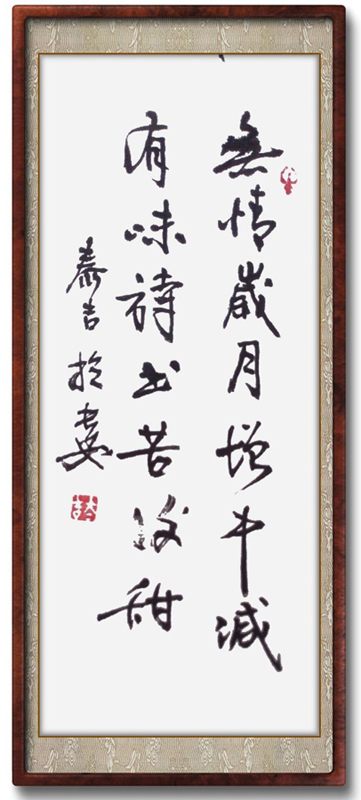 無情歲月增中減
有味詩书苦後甜
泰吉於